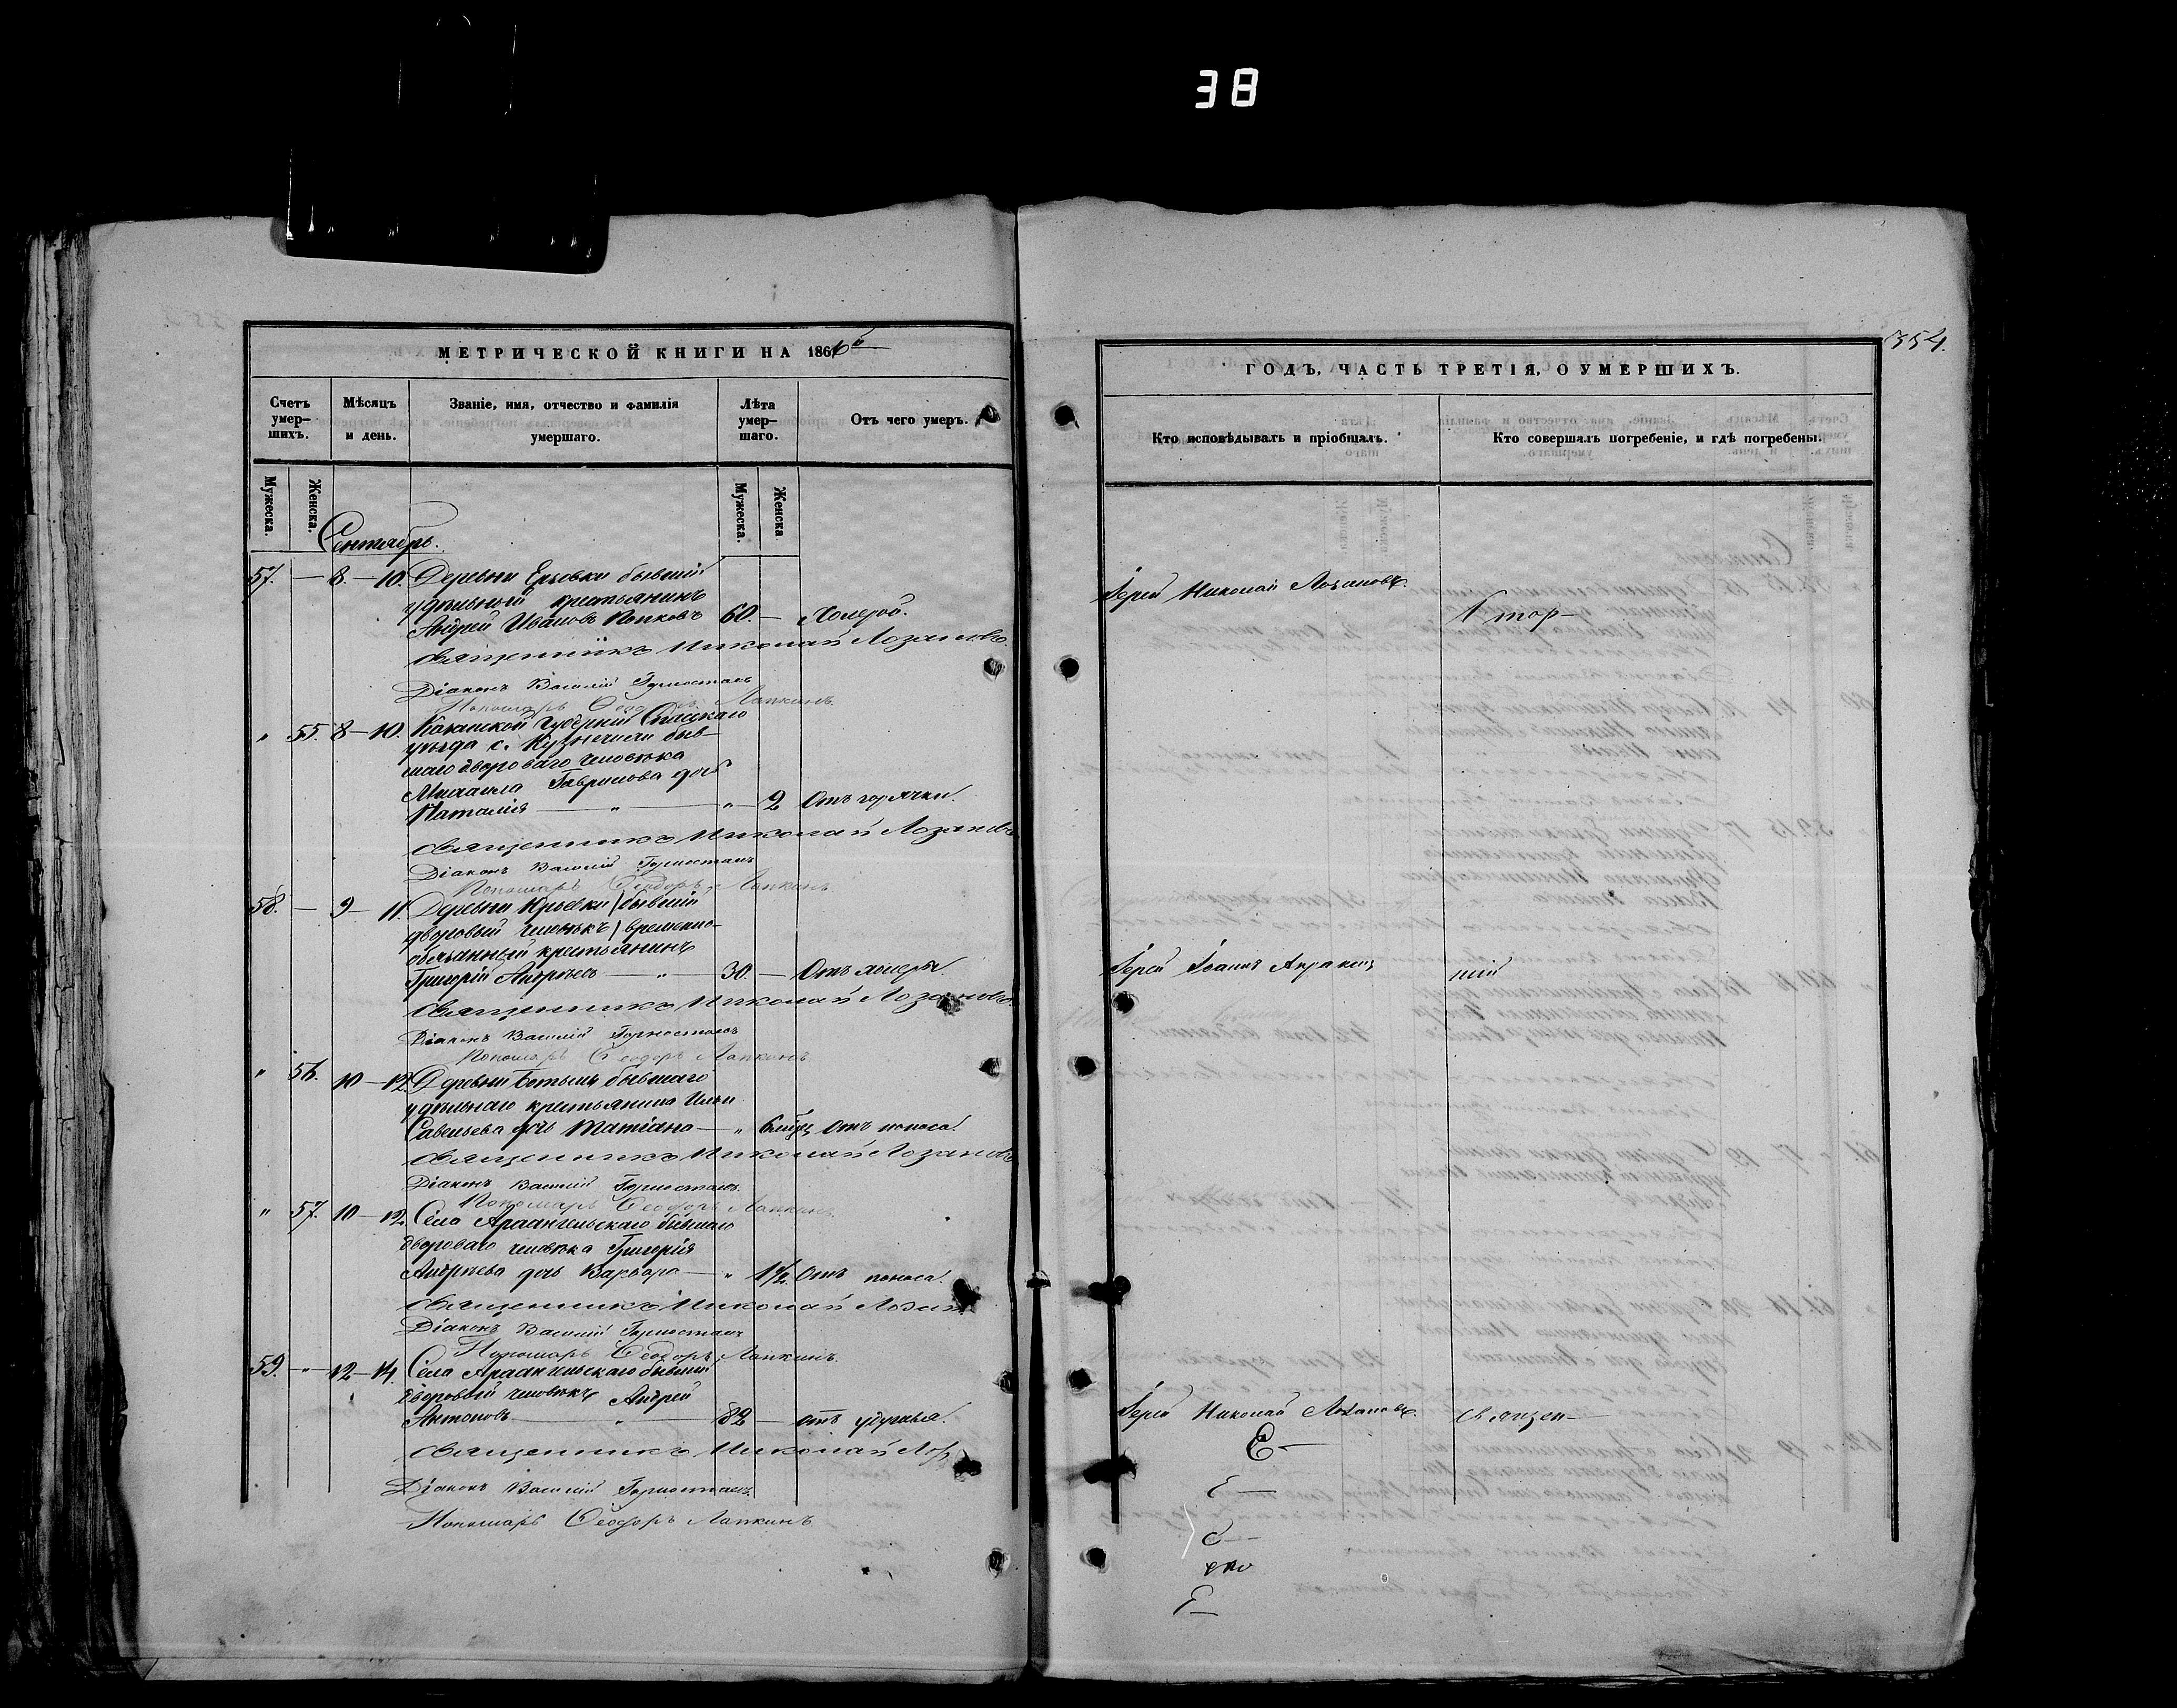 38
354.
МЕТРИЧЕСКОЙ КНИГИ НА 1866й
Счетъ умер-шихъ.
Мѣсяцъ и день.
Званіе, имя, отчество и фамилія умершаго.
Лѣта умер-шаго.
Отъ чего умеръ.
Мужеска. Женска. Мужеска. Женска
Сентябрь.
57. — 8.—10. Деревни Ерьовки бывшій
удѣльный крестьянинъ
Андрей Ивановъ Попковъ 60. — Холерой.
Священникъ Николай Лозановъ.
Діаконъ Василій Горностаевъ
Пономарь Ѳеодоръ Лапкинъ.
" 55. 8—10. Казанской Губерніи Спаскаго
уѣзда с. Кузнечихи быв-
шаго двороваго человѣка
Михаила Гаврилова дочь
Наталія — " — " — 2 Отъ горячки.
Священникъ Николай Лозановъ
Діаконъ Василій Горностаевъ
Пономарь Ѳеодоръ Лапкинъ.
58. — 9—11. Деревни Юрьевки /бывшій
дворовый человѣкъ/ временно-
обязанный крестьянинъ
Григорій Андреевъ — " — 30. — Отъ холеры.
Священникъ Николай Лозановъ.
Діаконъ Василій Горностаевъ
Пономарь Ѳеодоръ Лапкинъ
" 56. 10—12 Деревни бывшаго
удѣльнаго крестьянина Ильи
Савельева дочь Татіана — " 6 мѣсц Отъ поноса.
Священникъ Николай Лозановъ
Діаконъ Василій Горностаевъ.
Пономарь Ѳеодоръ Лапкинъ.
" 57. 10—12. Села Архангельскаго бывшаго
двороваго человѣка Григорія
Андреева дочь Варвара — " 1½ Отъ поноса.
Священникъ Николай Лозан
Діаконъ Василій Горностаевъ
Пономарь Ѳеодоръ Лапкинъ.
59. " 12—14. Села Архангельскаго бывшій
дворовый человѣкъ Андрей
Антоновъ — " — 82 — отъ удушья.
Священникъ Николай Лоз
Діаконъ Василій Горностаевъ.
Пономарь Ѳеодоръ Лапкинъ
ГОДЪ, ЧАСТЬ ТРЕТІЯ, О УМЕРШИХЪ.
Кто исповѣдывалъ и пріобщалъ.
Кто совершалъ погребеніе, и гдѣ погребены.
Іерей Николай Лозановъ.
Іерей Іоаннъ
Іерей Николай Лозановъ. Священ—